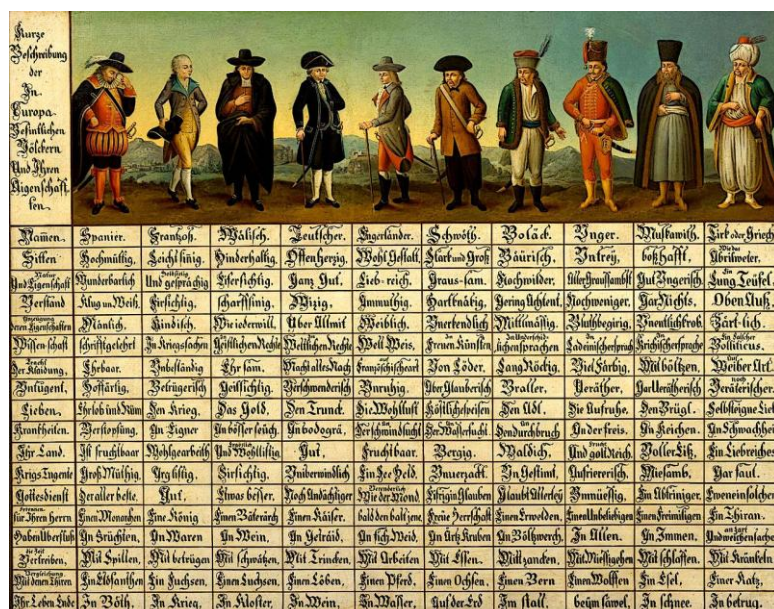 Kurze
Beschreibung
der
In
Europa
Befintlichen
Völckern
Und Ihren
Aigenschaff
ten.
Namen. Spanier. Frantzoß. Wälisch. Teutscher. Engerländer. Schwöth. Boläck. Unger. Muskawith. Tirk oder Griech
Sitten Hochmüttig. Leichtsinig. Hinderhaltig. Offenherzig. Wohl Gestalt. Stark und Groß Bäurisch. Untrey. boßhafft. Abrilweter.
Und Eigenschaft Wunderbarlich Und gesprächig Eifersichtig. Ganz Gut. Lieb-reich. Graus-sam. Nochwilder. Aller Graussambst Gut Ungerisch. Lung Teüfel.
Verstand Klug un Weiß. Firsichtig. scharffsinig. Wizig. Ammuthig. Hartknätig. Gering Achtent. Nochweniger. Gar Nichts. Oben Auß.
deren Eigenschaften Mänlich. Kindisch. Wie iederwill. Über Allmit Weiblich. Unerkendlich Mittlmäsig. Bluthbegirig. Unentlich krob. Zärt-lich.
Wissenschaft schrifftgelehrt In Kriegssachen Geistlichen Rechte Weltlichen Rechte Well Weis. Freuen Künsten lichensprachen Ladeinischersprach Krichischersprache Bolliticus.
Der Klaidung. Ehrbaar. Unbeständig Ehrsam. Macht alles Nach Französischeart Von Löder. Lang Röckig. Viel Färbig. Mit böltzen. Weiber Art.
Untugent. Hoffärtig. Betrügerisch Geillsichtig. Verschwenderisch Unruhig. Über Glauberisch Braller. Veräther. Gar Verätherisch Verätterischer.
Lieben. Ehrlob und Rüm Den Krieg. Das Gold. Den Trunck. Die Wohllust Köstlichespeisen Den Adl. Die Aufruhe. Den Brügl. Selbsteigne Lieb
Krankheiten. Verstopfung. An Eigner An bösser seüch. An bodogrä. Der schwindsucht Der Wassersucht. Den durchbruch An der freis. An Keichen. An Schwachheit
Ihr Land. Ist fruchtbaar Wohlgearbeith Und Wohllistig Gut. Fruchtbaar. Bergig. Waldich. Und gollt Reich. Voller Eiß. Ein Liebreiches
Krigs Tugente Groß Müthig. Arg listig. Firsichtig. Uniberwindlich Ein See Held. Unverzackt. Un Gestimt. Aufriererisch. Miesamb. Gar faul.
Gottesdienst Der aller beste. Gut. Etwas besser. Noch Andächtiger Wie der Mond. Eifrig in Glauben Glaubt Allerley Unmüessig. Ein Abtriniger. Eweneinsolcher
für Ihren herrn Einen Monarchen Eine König Einen Baterärch Einen Käiser. bald den balt jene. Freüe Herrschaft Einen Erwolden. Einen Unbeliebigen Einen Freimilligen Ein Thiran.
Haben Uberfluß An Früchten. An Waren An Wein. An Getraid. An fich Weid. An Artz Kruben An Böltzwerch. In Allen. An Immen. Und weichensachen
Vertreiben, Mit Spillen. Mit betrügen Mit schwätzen. Mit Trincken. Mit Arbeiten Mit Essen. Mit zancken. Mit Miessigehen Mit schlaffen. Mit Kränkeln
Mit denen Thiren Ein Elofanthen Ein Fuchsen. Einen Luchsen. Einen Löben. Einen Pferd. Einen Ochsen. Einen Bern Einen Wolffen Ein Esel. Einer Katz.
Ihr Leben Ende In Böth. In Krieg. In Kloster. In Wein. In Wasser. Auf der Erd Im stall. beym sawel. In schnee. In betrug.